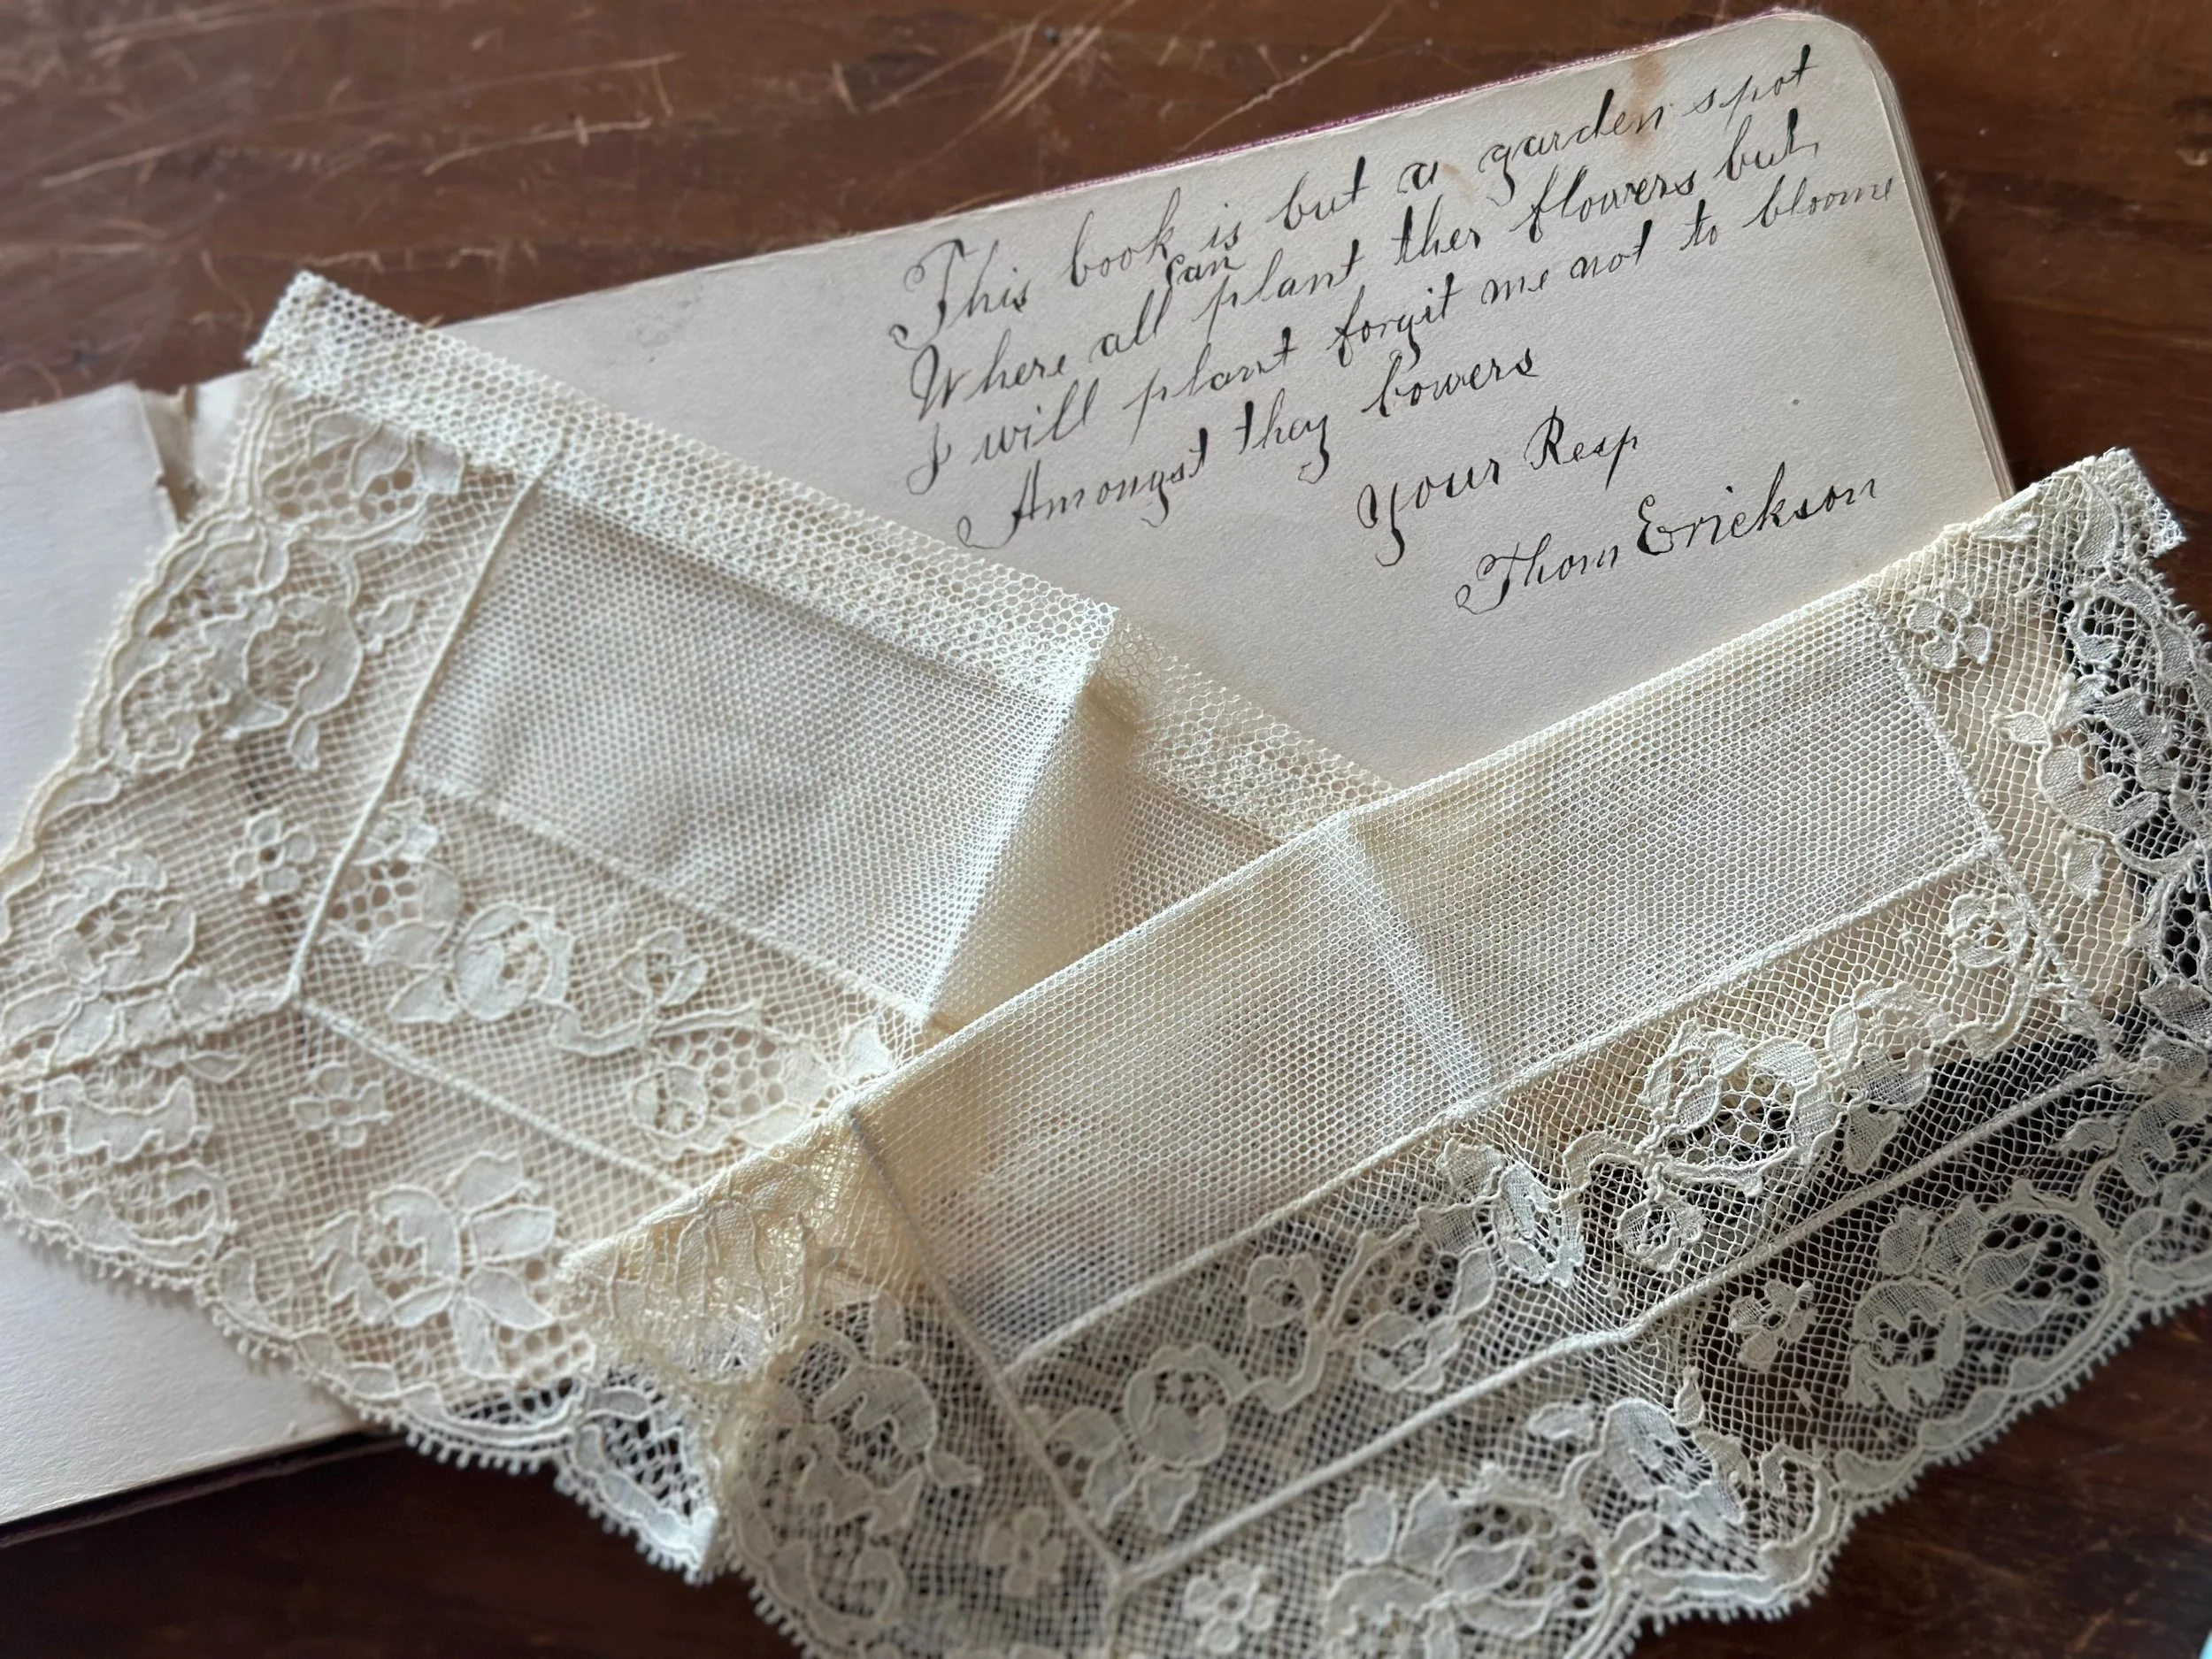 This book is but a garden spot
Where all can plant ther flowers but
I will plant forgit me not to bloome
Amongst they bowers
Your Resp
Thom Erickson